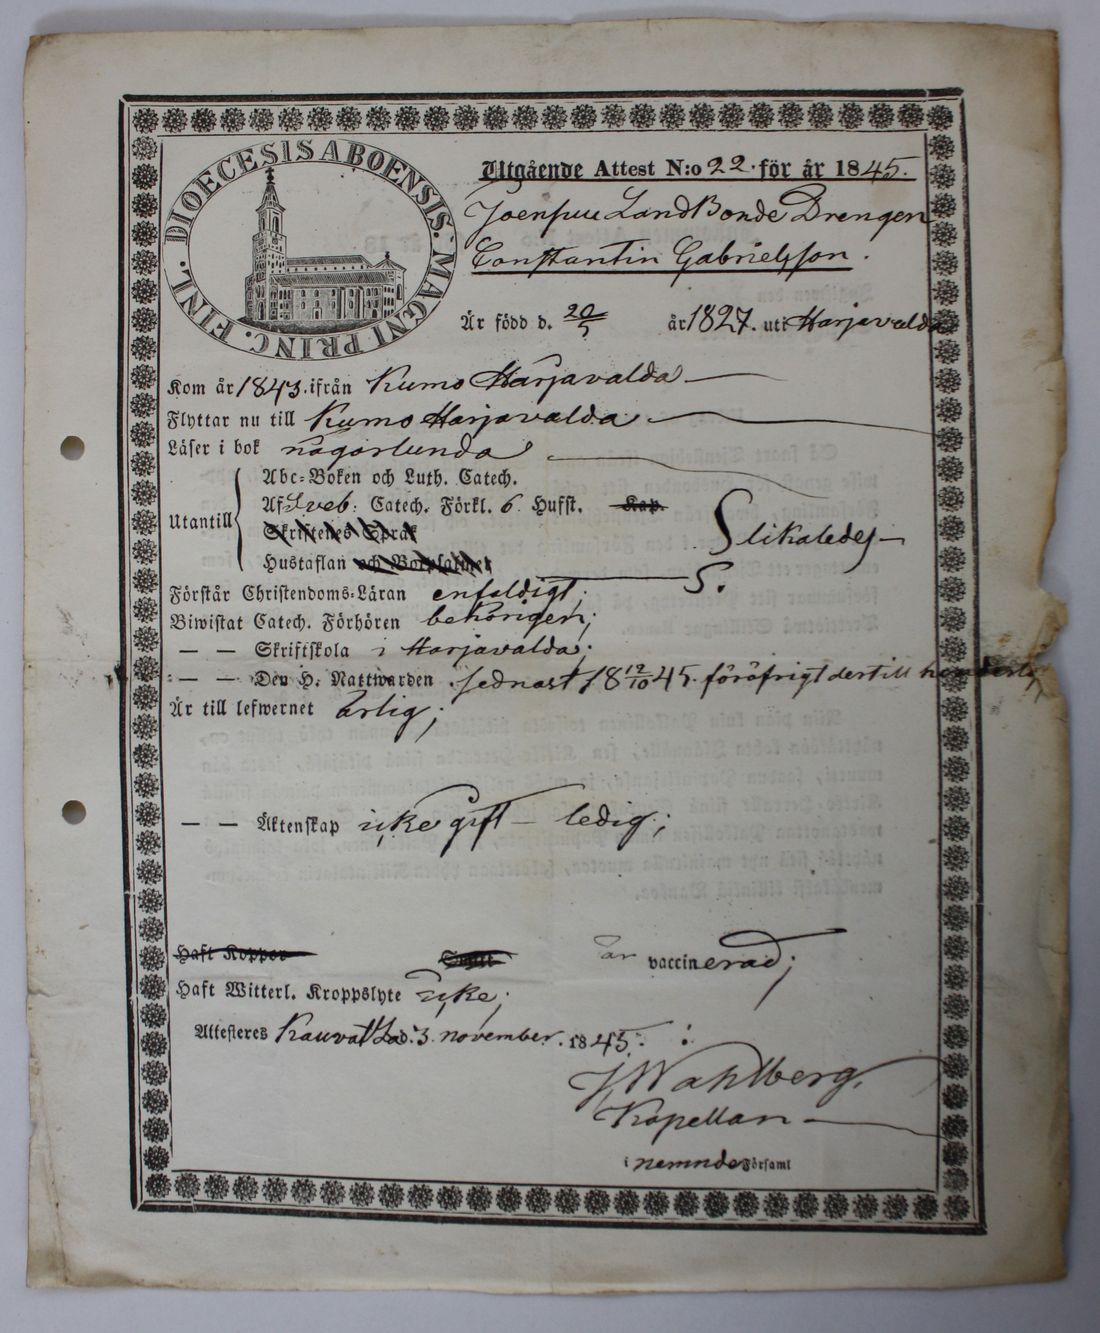 DIOECESIS ABOENSIS. MAGNI PRINC. FINL.
Utgående Attest N:o 22. för år 1845.
Joensuu LandBonde Drengen
Constantin Gabrielsson.
Är född d. 20/5 år 1827. uti Harjavalda
Kom år 1843. ifrån Kumo Harjavalda
Flyttar nu till Kumo Harjavalda
Läser i bok någorlunda
Utantill
Abc-Boken och Luth. Catech.
Af Sveb: Catech. Förkl. 6 Hufst. Kap.
Skriftenes Språk
Slikaledes
Hustaflan och Botpsalmer
Förstår Christendoms-Läran enfaldigt;
Biwistat Catech. Förhören behörigen;
— — Skriftskola i Harjavalda;
— — Den H. Nattwarden sednast 18 12/10 45. föröfrigt dertill
Är till lefwernet ärlig;
— — Äktenskap icke gift ledig;
Haft Koppor är vaccinerad;
Haft Witterl. Kroppslyte icke;
Attesteres d. 3. november. 1845.
Wahlberg,
Kapellan
i nemnde Församl